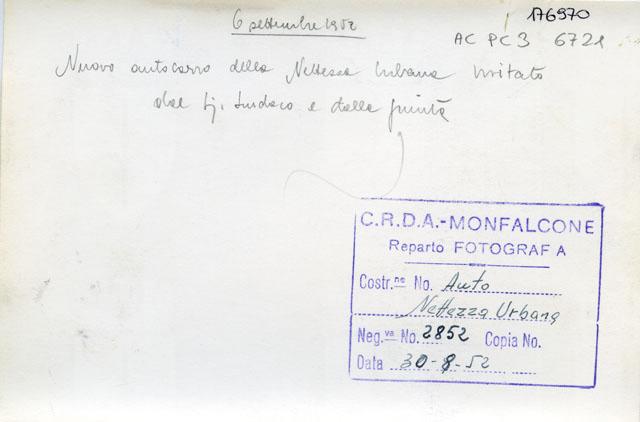 176970
6 settembre 1952
AC PC 3 6721
Nuovo autocarro della Nettezza Urbana visitato
dal Sindaco e dalla giunta
C.R.D.A.-MONFALCONE
Reparto FOTOGRAF A
Costr.ne No. Auto
Nettezza Urbana
Neg.va No. 2852 Copia No.
Data 30-8-52